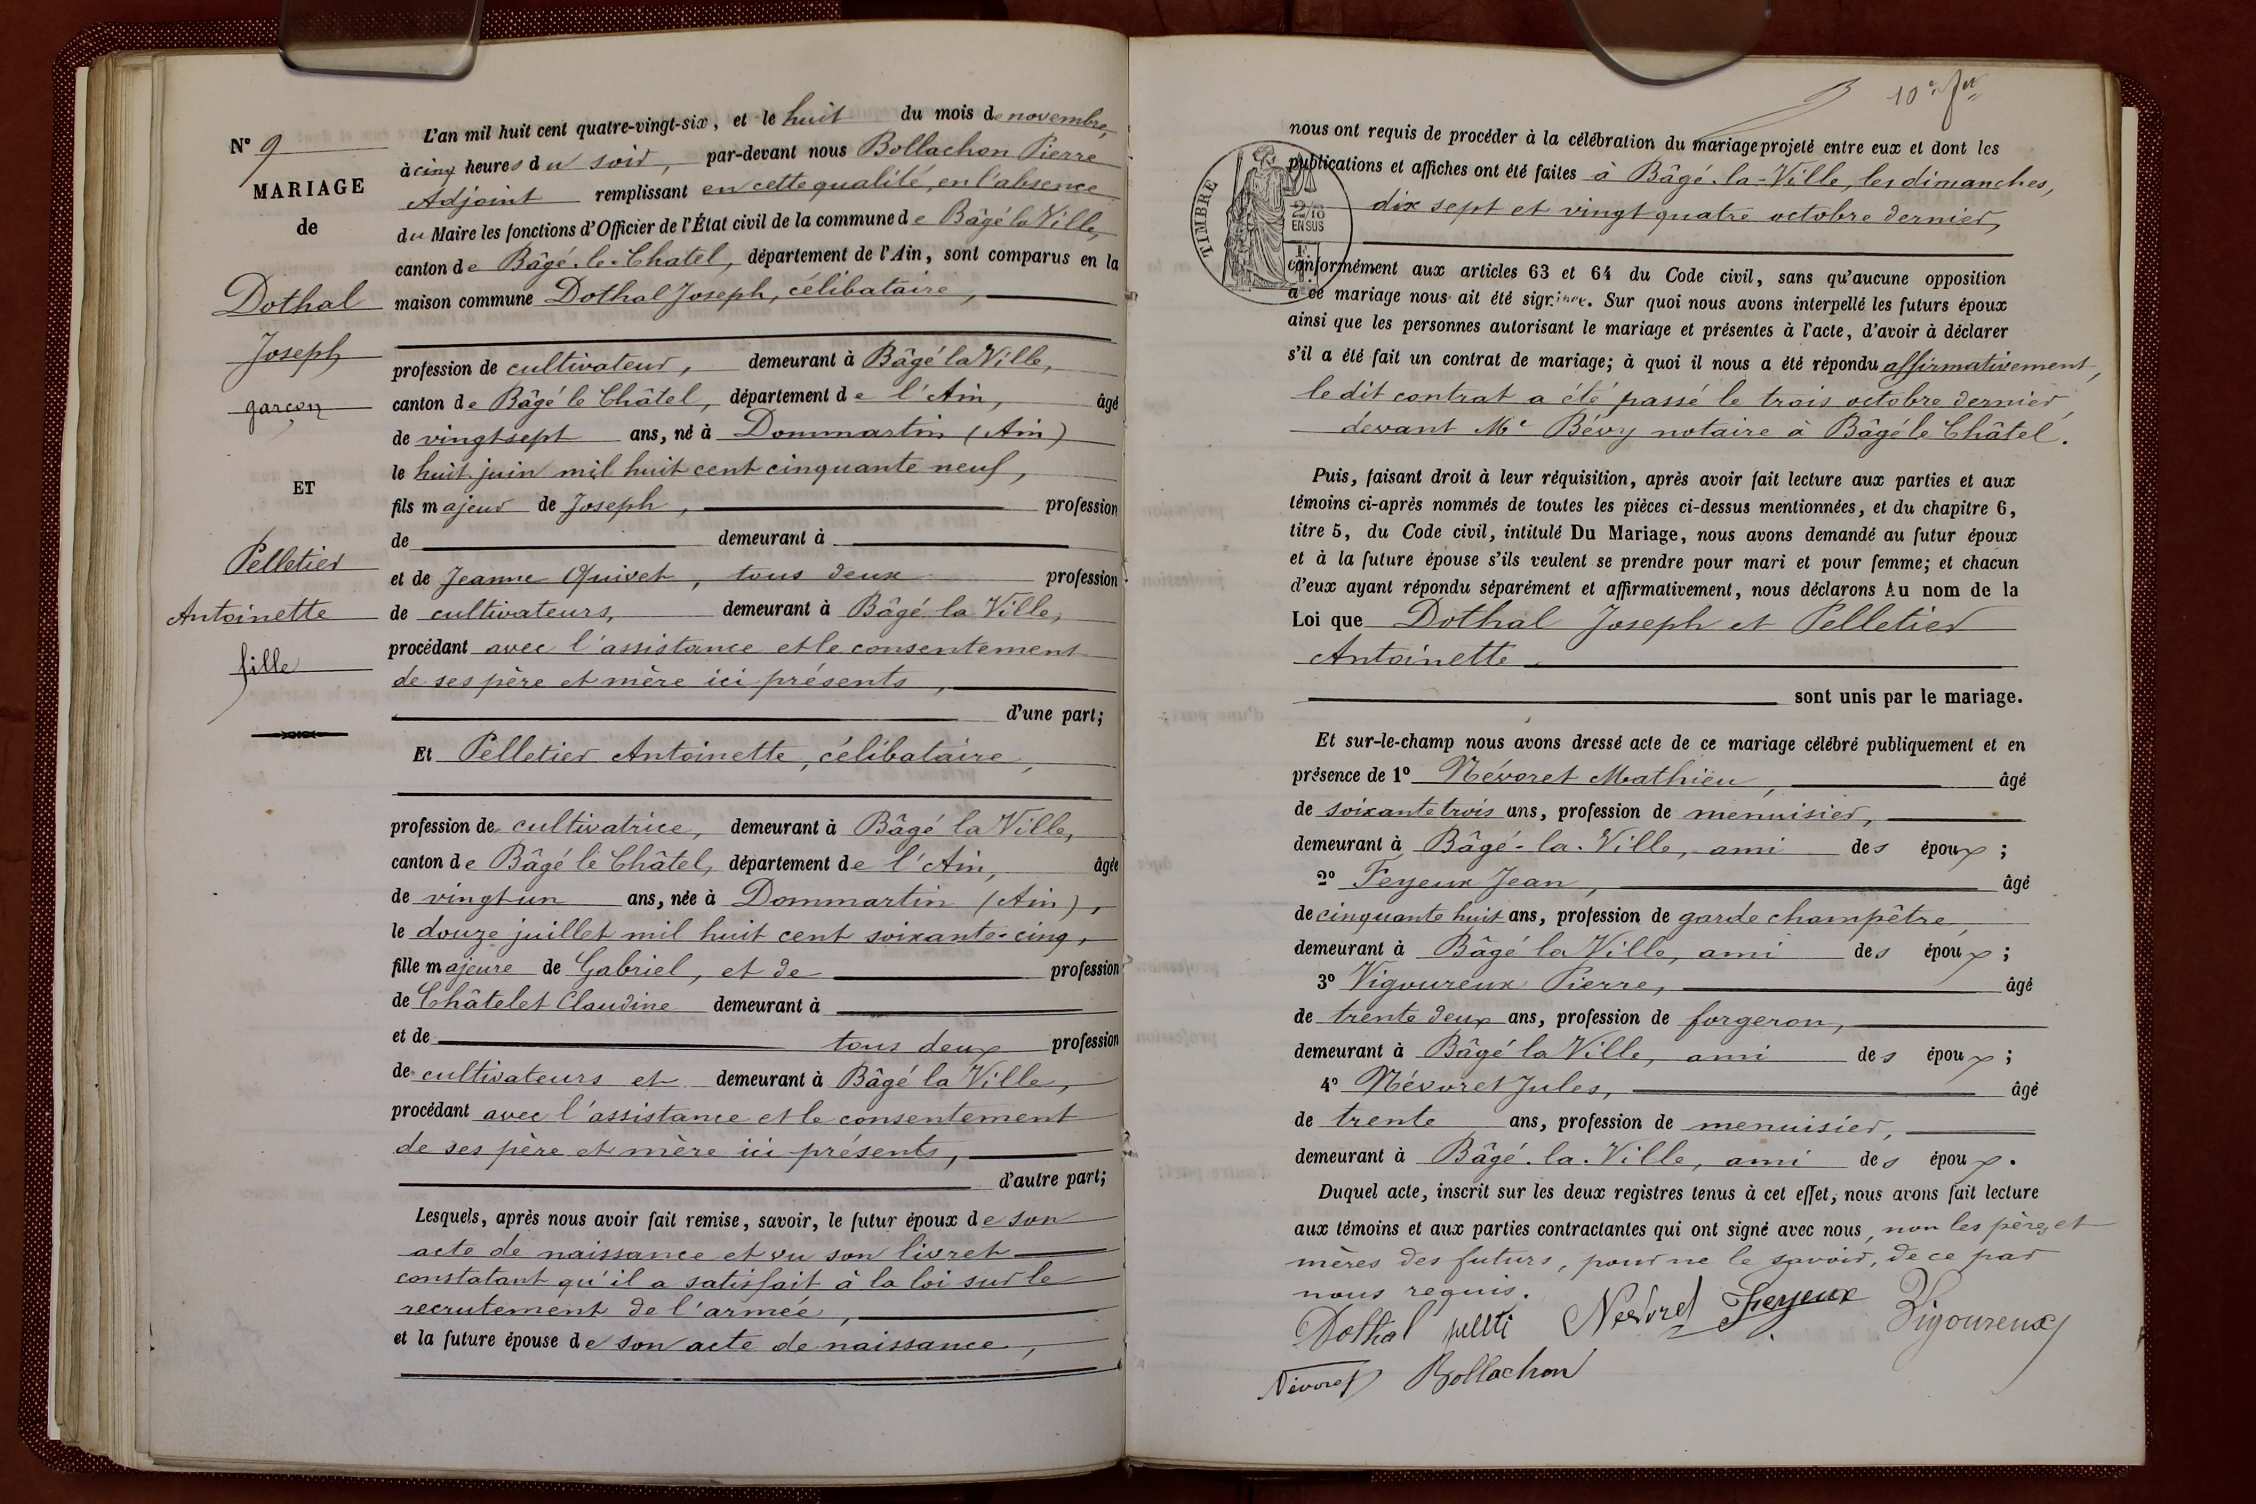 N° 9
MARIAGE
de
Dothal
Joseph
garçon
ET
Pelletier
Antoinette
fille
L'an mil huit cent quatre-vingt-six, et le huit du mois de novembre,
à cinq heures du soir, par-devant nous Bollachon Pierre
Adjoint remplissant en cette qualité, en l'absence
du Maire les fonctions d'Officier de l'État civil de la commune de Bâgé la Ville,
canton de Bâgé-le-Chatel, département de l'Ain, sont comparus en la
maison commune Dothal Joseph, célibataire,
profession de cultivateur, demeurant à Bâgé la Ville,
canton de Bâgé le Châtel, département de l'Ain, âgé
de vingt sept ans, né à Dommartin (Ain)
le huit juin mil huit cent cinquante neuf,
fils majeur de Joseph, profession
de demeurant à
et de Jeanne Quivet, tous deux profession
de cultivateurs, demeurant à Bâgé la Ville,
procédant avec l'assistance et le consentement
de ses père et mère ici présents,
d'une part;
Et Pelletier Antoinette, célibataire,
profession de cultivatrice, demeurant à Bâgé la Ville,
canton de Bâgé le Châtel, département de l'Ain, âgée
de vingt-un ans, née à Dommartin (Ain),
le douze juillet mil huit cent soixante-cinq,
fille majeure de Gabriel, et de profession
de Châtelet Claudine demeurant à
et de tous deux profession
de cultivateurs et demeurant à Bâgé la Ville,
procédant avec l'assistance et le consentement
de ses père et mère ici présents,
d'autre part;
Lesquels, après nous avoir fait remise, savoir, le futur époux de son
acte de naissance et vu son livret
constatant qu'il a satisfait à la loi sur le
recrutement de l'armée,
et la future épouse de son acte de naissance,
10e
TIMBRE
2/10
EN SUS
nous ont requis de procéder à la célébration du mariage projeté entre eux et dont les
publications et affiches ont été faites à Bâgé-la-Ville, les dimanches,
dix sept et vingt quatre octobre dernier,
conformément aux articles 63 et 64 du Code civil, sans qu'aucune opposition
à ce mariage nous ait été signifiée. Sur quoi nous avons interpellé les futurs époux
ainsi que les personnes autorisant le mariage et présentes à l'acte, d'avoir à déclarer
s'il a été fait un contrat de mariage; à quoi il nous a été répondu affirmativement,
le dit contrat a été passé le trois octobre dernier
devant Me Bévy notaire à Bâgé le Châtel.
Puis, faisant droit à leur réquisition, après avoir fait lecture aux parties et aux
témoins ci-après nommés de toutes les pièces ci-dessus mentionnées, et du chapitre 6,
titre 5, du Code civil, intitulé Du Mariage, nous avons demandé au futur époux
et à la future épouse s'ils veulent se prendre pour mari et pour femme; et chacun
d'eux ayant répondu séparément et affirmativement, nous déclarons Au nom de la
Loi que Dothal Joseph et Pelletier
Antoinette
sont unis par le mariage.
Et sur-le-champ nous avons dressé acte de ce mariage célébré publiquement et en
présence de 1° Névoret Mathieu, âgé
de soixante trois ans, profession de menuisier,
demeurant à Bâgé-la-Ville, ami des époux;
2° Feyeux Jean, âgé
de cinquante huit ans, profession de garde champêtre,
demeurant à Bâgé la Ville, ami des époux;
3° Vigoureux Pierre, âgé
de trente deux ans, profession de forgeron,
demeurant à Bâgé la Ville, ami des époux;
4° Névoret Jules, âgé
de trente ans, profession de menuisier,
demeurant à Bâgé-la-Ville, ami des époux.
Duquel acte, inscrit sur les deux registres tenus à cet effet, nous avons fait lecture
aux témoins et aux parties contractantes qui ont signé avec nous, non les pères et
mères des futurs, pour ne le savoir, de ce par
nous requis.
Dothal Nevoret Feyeux Vigoureux
Névoret Bollachon